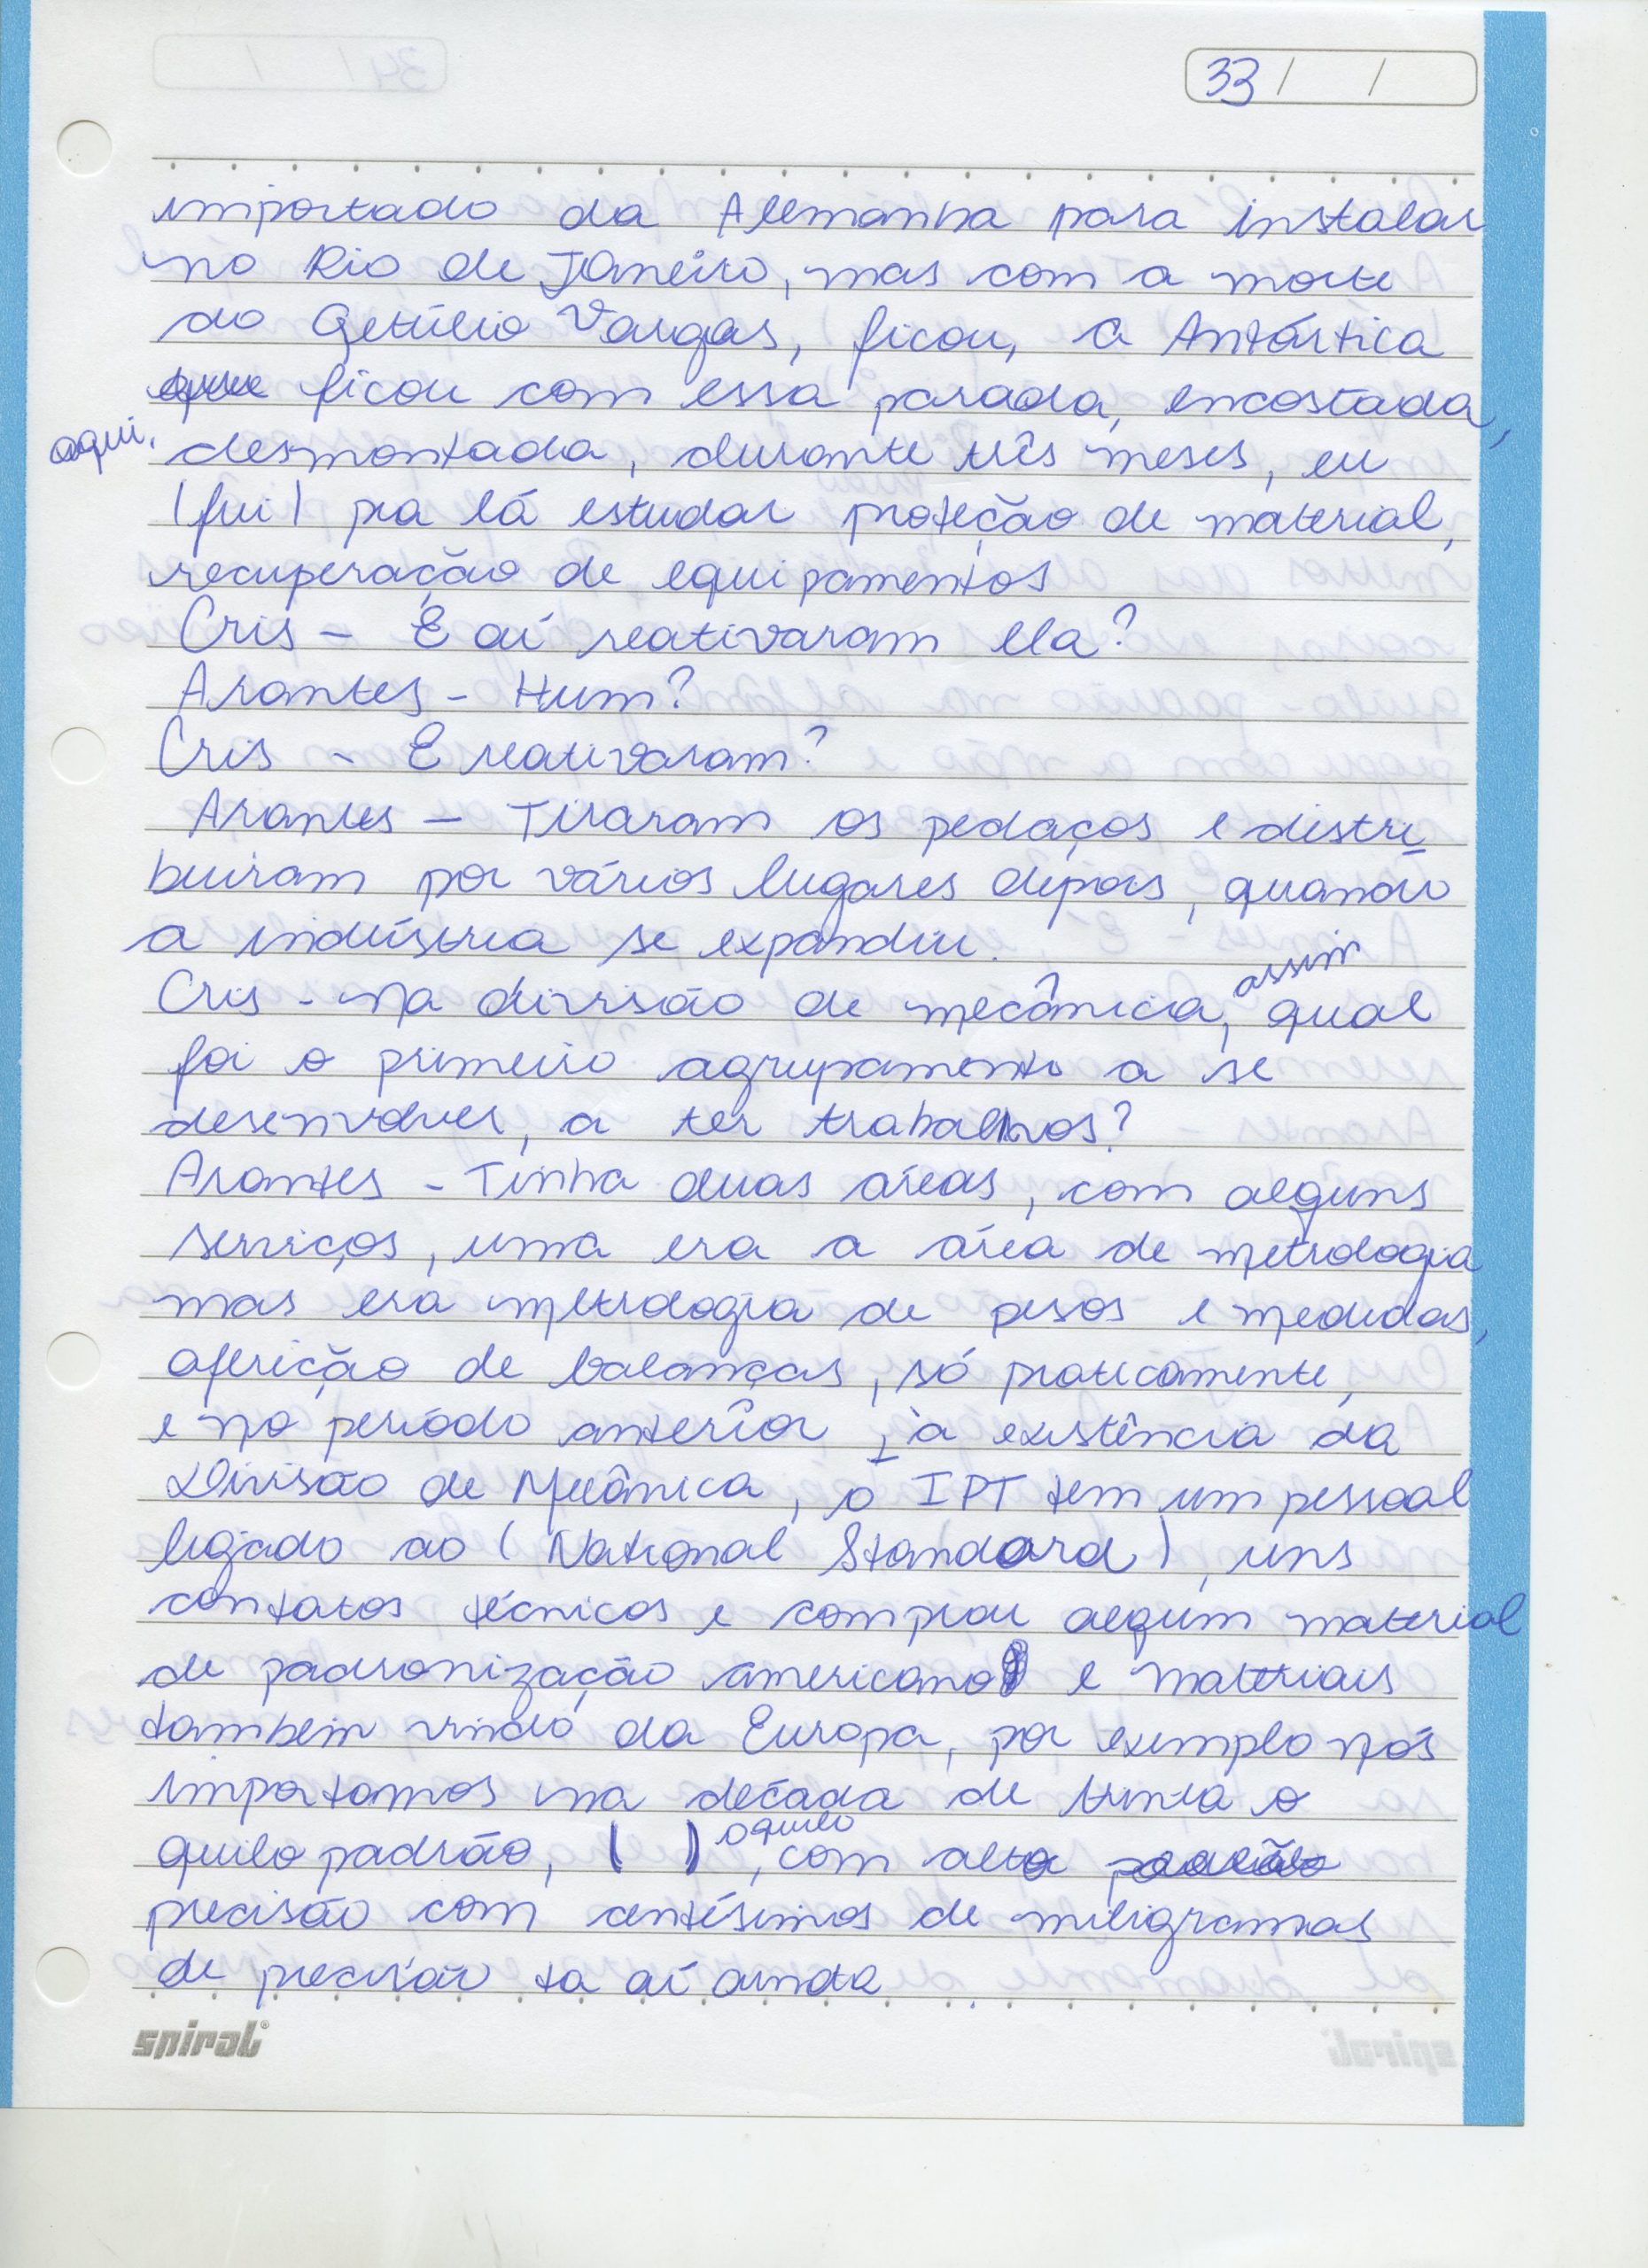 33 / /
importado da Alemanha para instalar
no Rio de Janeiro, mas com a morte
do Getúlio Vargas, ficou, a Antártica
ficou com essa parada, encostada,
aqui, desmontada, durante três meses, eu
(fui) pra lá estudar proteção de material,
recuperação de equipamentos
Cris - E aí reativaram ela?
Arantes - Hum?
Cris - E reativaram?
Arantes - Tiraram os pedaços e distri
buiram por vários lugares depois, quando
a indústria se expandiu.
assim
Cris - na divisão de mecânica, qual
foi o primeiro agrupamento a se
desenvolver, a ter trabalhos?
Arantes - Tinha duas áreas, com alguns
serviços, uma era a área de metrologia
mas era metrologia de pesos e medidas,
aferição de balanças, só praticamente,
e no período anterior, à existência da
Divisão de Mecânica, o IPT tem um pessoal
ligado ao (National Standard), uns
contatos técnicos e comprou algum material
de padronização americano e materiais
também vindo da Europa, por exemplo nós
importamos na década de trinta o
o quilo
quilo padrão, ( ), com alta
precisão com centésimos de miligramas
de precisão ta aí ainda
spiral®